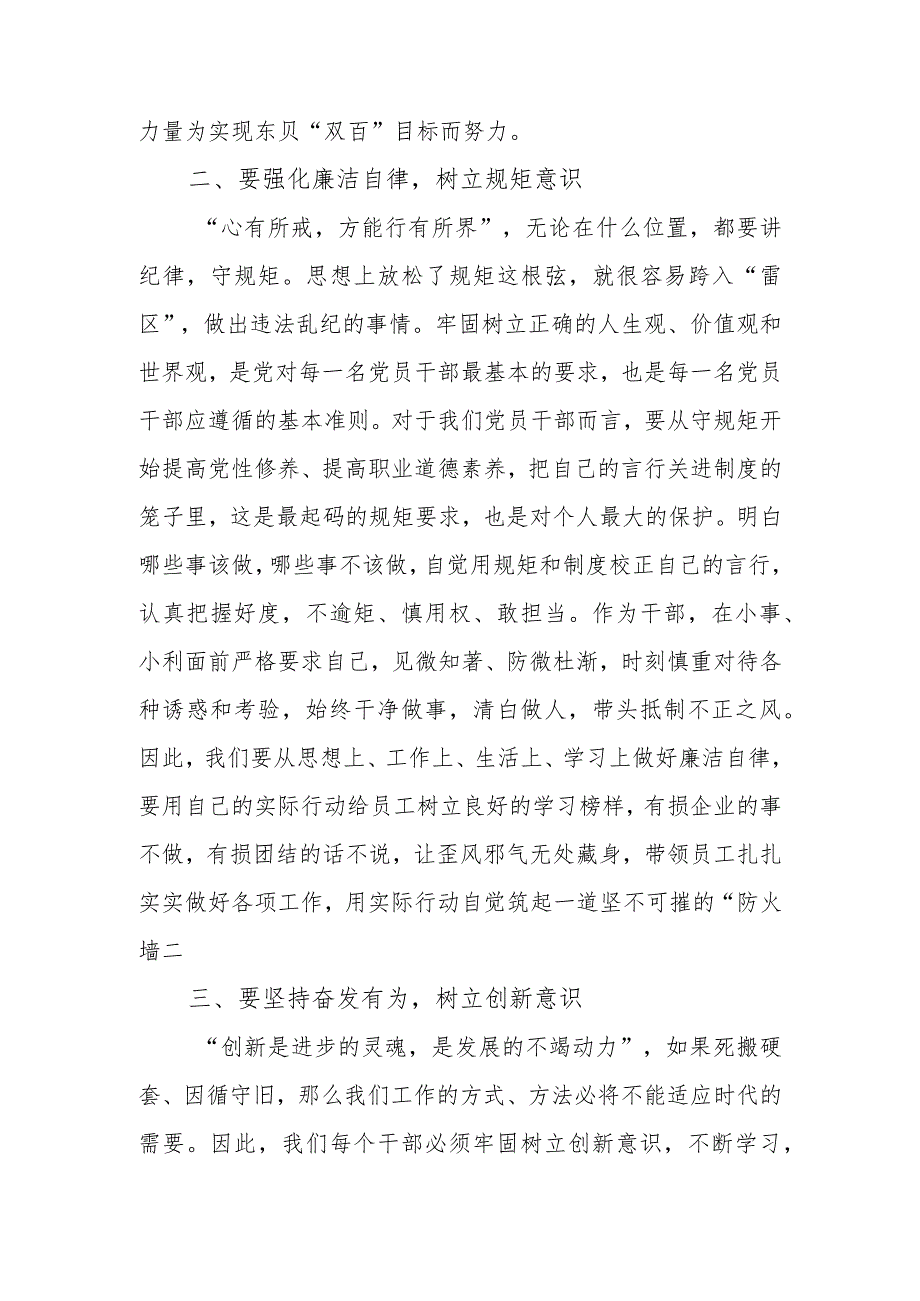 力量为实现东贝“双百”目标而努力。
二、要强化廉洁自律，树立规矩意识
“心有所戒，方能行有所界”，无论在什么位置，都要讲
纪律，守规矩。思想上放松了规矩这根弦，就很容易跨入“雷
区”，做出违法乱纪的事情。牢固树立正确的人生观、价值观和
世界观，是党对每一名党员干部最基本的要求，也是每一名党员
干部应遵循的基本准则。对于我们党员干部而言，要从守规矩开
始提高党性修养、提高职业道德素养，把自己的言行关进制度的
笼子里，这是最起码的规矩要求，也是对个人最大的保护。明白
哪些事该做，哪些事不该做，自觉用规矩和制度校正自己的言行，
认真把握好度，不逾矩、慎用权、敢担当。作为干部，在小事、
小利面前严格要求自己，见微知著、防微杜渐，时刻慎重对待各
种诱惑和考验，始终干净做事，清白做人，带头抵制不正之风。
因此，我们要从思想上、工作上、生活上、学习上做好廉洁自律，
要用自己的实际行动给员工树立良好的学习榜样，有损企业的事
不做，有损团结的话不说，让歪风邪气无处藏身，带领员工扎扎
实实做好各项工作，用实际行动自觉筑起一道坚不可摧的“防火
墙二
三、要坚持奋发有为，树立创新意识
“创新是进步的灵魂，是发展的不竭动力”，如果死搬硬
套、因循守旧，那么我们工作的方式、方法必将不能适应时代的
需要。因此，我们每个干部必须牢固树立创新意识，不断学习，